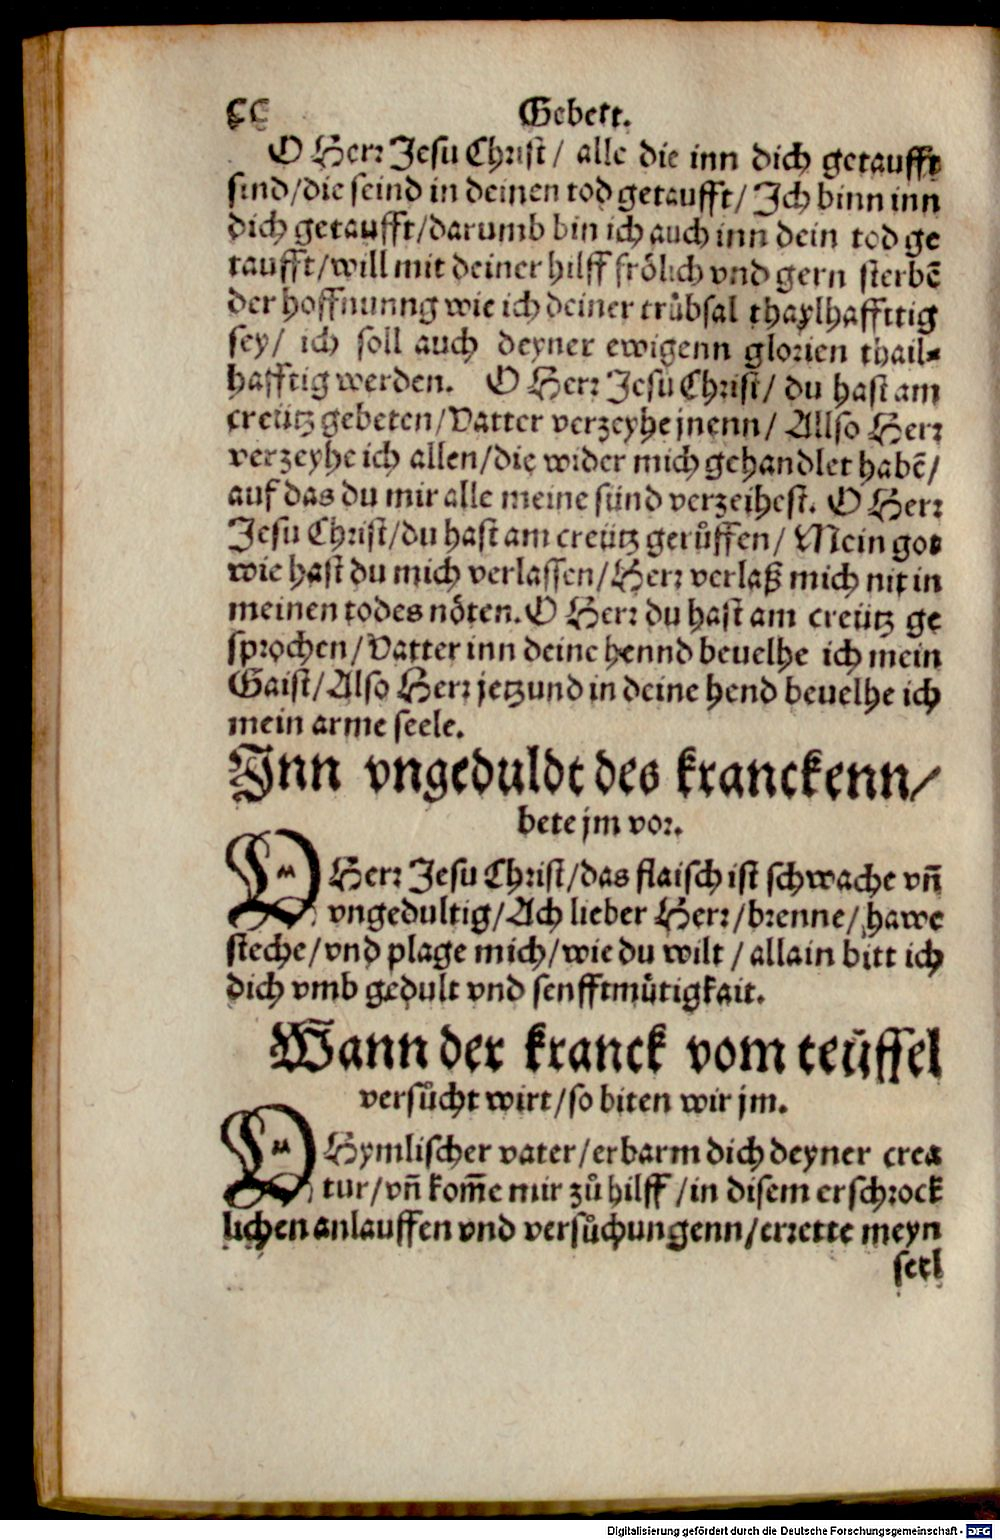 ϛϛ Gebett.
O Herr Jesu Christ/ alle die inn dich getaufft
sind/die seind in deinen tod getaufft/ Ich binn inn
dich getaufft/darumb bin ich auch inn dein tod ge
taufft/will mit deiner hilff frölich vnd gern sterbē
der hoffnunng wie ich deiner trübsal thaylhafftig
sey/ ich soll auch deyner ewigenn glorien thail⸗
hafftig werden. O Herr Jesu Christ/ du hast am
creütz gebeten/Vatter verzeyhe jnenn/ Allso Herr
verzeyhe ich allen/die wider mich gehandlet habē/
auf das du mir alle meine sünd verzeihest. O Herr
Jesu Christ/du hast am creütz gerůffen/ Mein got
wie hast du mich verlassen/Herr verlaß mich nit in
meinen todes nöten. O Herr du hast am creütz ge
sprochen/Vatter inn deine hennd beuelhe ich mein
Gaist/Also Herr jetzund in deine hend beuelhe ich
mein arme seele.
Inn vngeduldt des kranckenn/
bete jm vor.
O Herr Jesu Christ/das flaisch ist schwache vñ
vngedultig/Ach lieber Herr/brenne/hawe
steche/vnd plage mich/wie du wilt/allain bitt ich
dich vmb gedult vnd senfftmütigkait.
Wann der kranck vom teüffel
versůcht wirt/so biten wir jm.
O Hymlischer vater/erbarm dich deyner crea
tur/vñ kom̄e mir zů hilff/in disem erschrock
lichen anlauffen vnd versůchungenn/errette meyn
seel
Digitalisierung gefördert durch die Deutsche Forschungsgemeinschaft - DFG